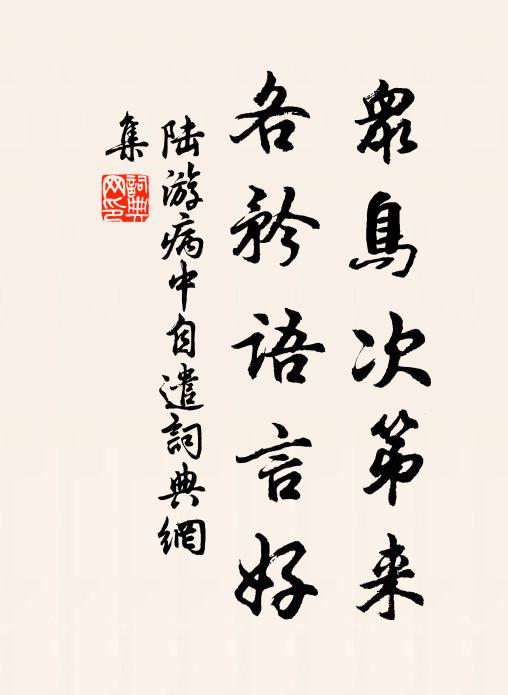 眾鳥次第来
各矜語言好
陆游病中自遣詞典網
集
詞典网印